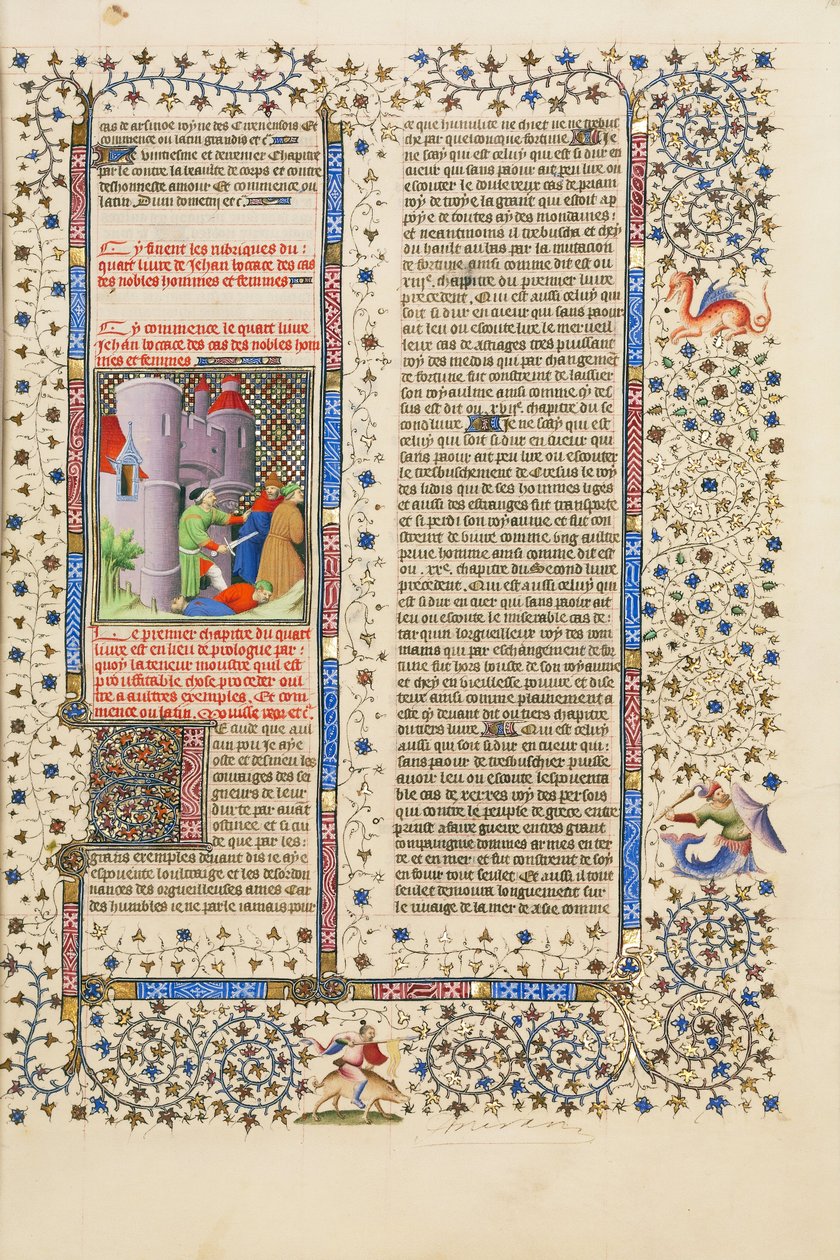 cas de arsinoe royne des Cirenensois Et
commence ou latin grandis et c.
Le vintiesme et derrenier Chapitre
parle contre la beaulte de corps et contre
deshonneste amour Et commence ou
latin. Dum dometri et c.
Cy finent les rubriques du
quart livre de Jehan boccace des cas
des nobles hommes et femmes
Cy commence le quart livre
Jehan boccace des cas des nobles hom
mes et femmes
Le premier chapitre du quart
livre est en lieu de prologue par
quoy la teneur moustre quil est
prouffitable chose proceder oul
tre a aultres exemples. Et com
mence ou latin.
Je cuide que aul
cun pou Je aye
oste et desmeu les
couraiges des sei
gneurs de leur
durte par avant
ostinee et si cui
de que par les
grans exemples devant dis ie aye
espovente loultraige et les desordon
nances des orgueilleuses ames Car
des humbles ie ne parle iamais pour
ce que humilite ne chiet ne ne trebus
che par quelconque fortune. Je
ne scay qui est celuy qui est si dur en
cueur qui sans paour ait peu lire ou
escouter le douloureux cas de priam
roy de troye la grant qui estoit ap
poye de toutes aydes mondaines
et neantmoins il trebuscha et chey
du hault au bas par la mutacion
de fortune ainsi comme dit est ou
xiije. chapitre du premier livre
precedent. Qui est aussi celuy qui
soit si dur en cueur qui sans paour
ait leu ou escoute lire le merveil
leux cas de astiages tres puissant
roy des medois qui par changement
de fortune fut constreint de laissier
son royaulme ainsi comme cy des
sus est dit ou xviije. chapitre du se
cond livre. Je ne scay qui est
celuy qui soit si dur en cueur qui
sans paour ait peu lire ou escouter
le tresbuschement de Cresus le roy
des lidois qui de ses hommes liges
et aussi des estranges fut transporte
et si perdi son royaume et fut con
streint de vivre comme ung aultre
prive homme ainsi comme dit est
ou .xxe. chapitre du Second livre
precedent. Qui est aussi celuy qui
est si dur en cuer qui sans paour ait
leu ou escoute le miserable cas de
tarquin lorgueilleux roy des rom
mains qui par eschangement de for
tune fut hors boute de son royaume
et chey en vieillesse povre et dise
teux ainsi comme plainement a
este cy devant dit ou tiers chapitre
du tiers livre. Qui est celuy
aussi qui soit si dur en cueur qui
sans paour de tresbuschier puisse
avoir leu ou escoute lespoventa
ble cas de xerxes roy des persois
qui contre le peuple de grece entre
print a faire guerre entres grant
compaignie dommes armes en ter
re et en mer et fut constreint de soy
en fouir tout seulet Et aussi il tout
seulet demoura longuement sur
le rivaige de la mer de asie comme